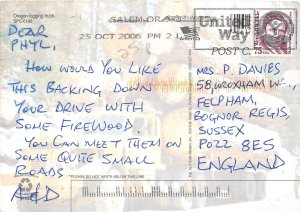 Oregon logging truck.
SPC-0196
SALEM OR 973
25 OCT 2006 PM 2
United
Way
DEAR
PHYL,
HOW WOULD YOU LIKE
THIS BACKING DOWN
YOUR DRIVE WITH
SOME FIREWOOD.
YOU CAN MEET THEM ON
SOME QUITE SMALL
ROADS.
A&D
POST C
MRS. P. DAVIES
58 WROXHAM
FELPHAM,
BOGNOR REGIS,
SUSSEX
PO22 8ES
ENGLAND
PLEASE DO NOT WRITE BELOW THIS LINE